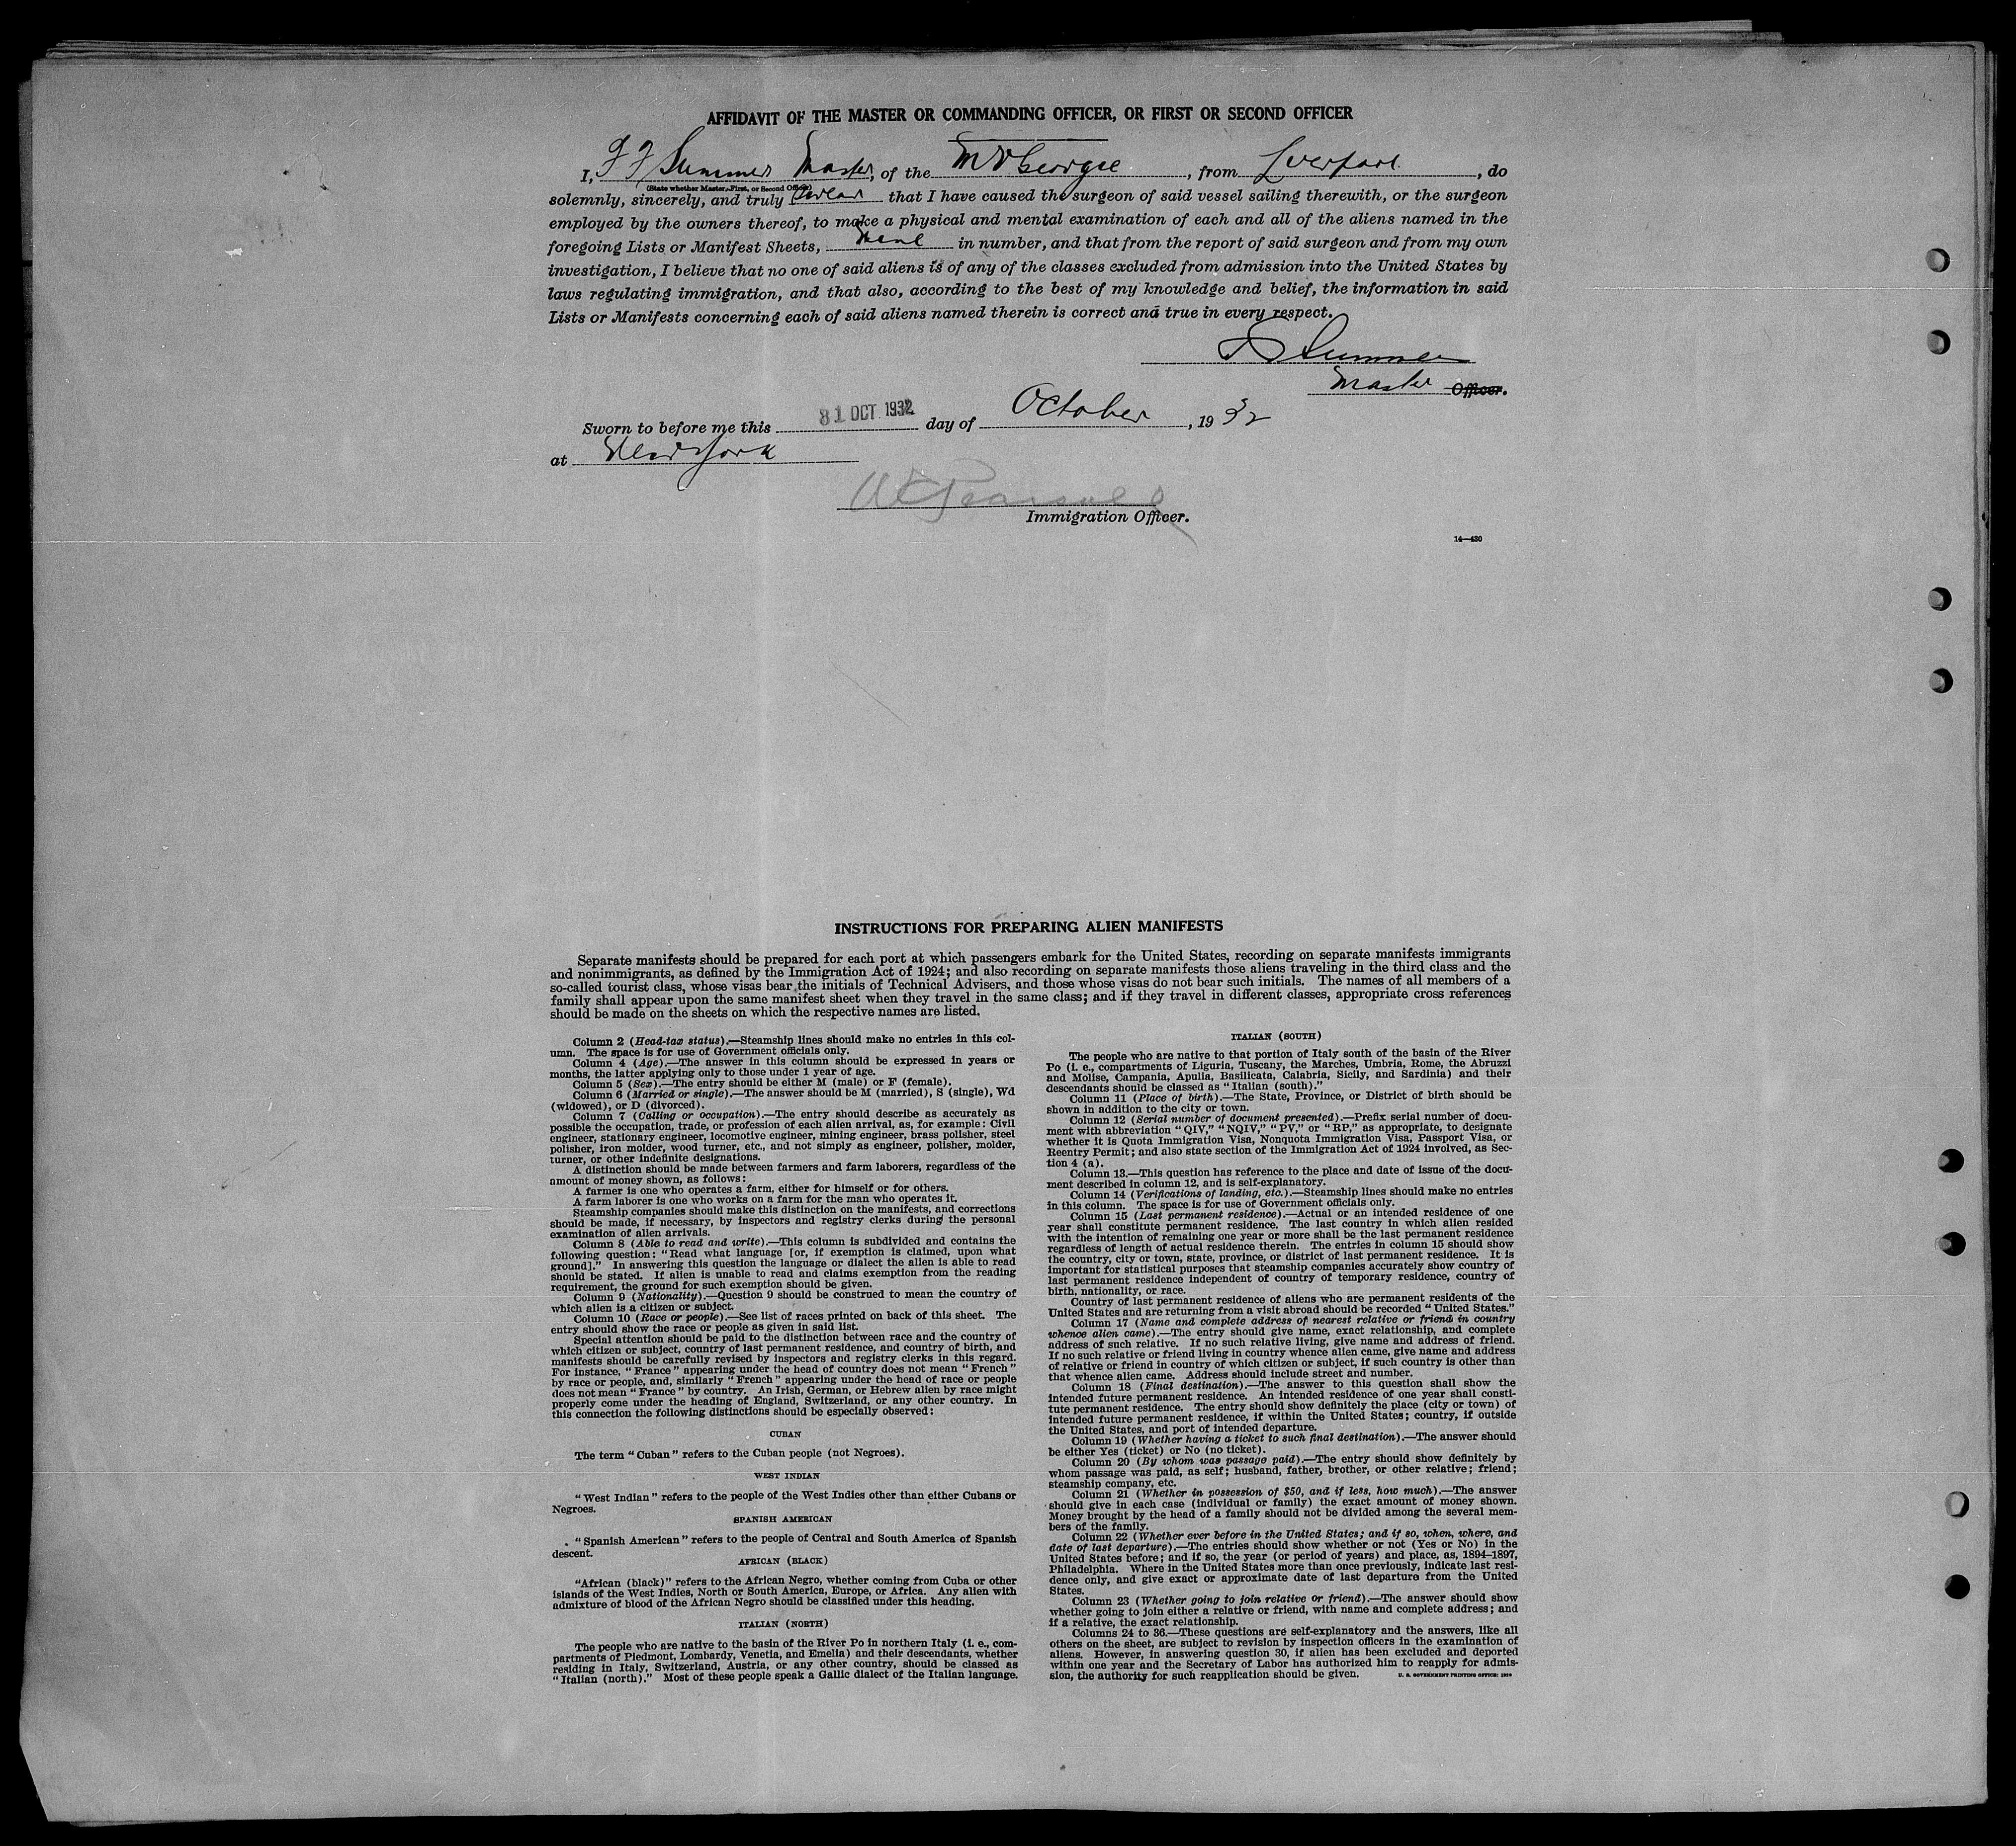 AFFIDAVIT OF THE MASTER OR COMMANDING OFFICER, OR FIRST OR SECOND OFFICER
I, F F Summer Master, of the M V Georgic, from Liverpool, do
(State whether Master, First, or Second Officer)
solemnly, sincerely, and truly swear that I have caused the surgeon of said vessel sailing therewith, or the surgeon
employed by the owners thereof, to make a physical and mental examination of each and all of the aliens named in the
foregoing Lists or Manifest Sheets, in number, and that from the report of said surgeon and from my own
investigation, I believe that no one of said aliens is of any of the classes excluded from admission into the United States by
laws regulating immigration, and that also, according to the best of my knowledge and belief, the information in said
Lists or Manifests concerning each of said aliens named therein is correct and true in every respect.
F F Summer
Master Officer.
Sworn to before me this 31 OCT 1932 day of October, 1932
at New York
Immigration Officer.
14—430
INSTRUCTIONS FOR PREPARING ALIEN MANIFESTS
Separate manifests should be prepared for each port at which passengers embark for the United States, recording on separate manifests immigrants
and nonimmigrants, as defined by the Immigration Act of 1924; and also recording on separate manifests those aliens traveling in the third class and the
so-called tourist class, whose visas bear the initials of Technical Advisers, and those whose visas do not bear such initials. The names of all members of a
family shall appear upon the same manifest sheet when they travel in the same class; and if they travel in different classes, appropriate cross references
should be made on the sheets on which the respective names are listed.
Column 2 (Head-tax status).—Steamship lines should make no entries in this col-
umn. The space is for use of Government officials only.
Column 4 (Age).—The answer in this column should be expressed in years or
months, the latter applying only to those under 1 year of age.
Column 5 (Sex).—The entry should be either M (male) or F (female).
Column 6 (Married or single).—The answer should be M (married), S (single), Wd
(widowed), or D (divorced).
Column 7 (Calling or occupation).—The entry should describe as accurately as
possible the occupation, trade, or profession of each alien arrival, as, for example: Civil
engineer, stationary engineer, locomotive engineer, mining engineer, brass polisher, steel
polisher, iron molder, wood turner, etc., and not simply as engineer, polisher, molder,
turner, or other indefinite designations.
A distinction should be made between farmers and farm laborers, regardless of the
amount of money shown, as follows:
A farmer is one who operates a farm, either for himself or for others.
A farm laborer is one who works on a farm for the man who operates it.
Steamship companies should make this distinction on the manifests, and corrections
should be made, if necessary, by inspectors and registry clerks during the personal
examination of alien arrivals.
Column 8 (Able to read and write).—This column is subdivided and contains the
following question: "Read what language [or, if exemption is claimed, upon what
ground]." In answering this question the language or dialect the alien is able to read
should be stated. If alien is unable to read and claims exemption from the reading
requirement, the ground for such exemption should be given.
Column 9 (Nationality).—Question 9 should be construed to mean the country of
which alien is a citizen or subject.
Column 10 (Race or people).—See list of races printed on back of this sheet. The
entry should show the race or people as given in said list.
Special attention should be paid to the distinction between race and the country of
which citizen or subject, country of last permanent residence, and country of birth, and
manifests should be carefully revised by inspectors and registry clerks in this regard.
For instance, "France" appearing under the head of country does not mean "French"
by race or people, and, similarly "French" appearing under the head of race or people
does not mean "France" by country. An Irish, German, or Hebrew alien by race might
properly come under the heading of England, Switzerland, or any other country. In
this connection the following distinctions should be especially observed:
CUBAN
The term "Cuban" refers to the Cuban people (not Negroes).
WEST INDIAN
"West Indian" refers to the people of the West Indies other than either Cubans or
Negroes.
SPANISH AMERICAN
"Spanish American" refers to the people of Central and South America of Spanish
descent.
AFRICAN (BLACK)
"African (black)" refers to the African Negro, whether coming from Cuba or other
islands of the West Indies, North or South America, Europe, or Africa. Any alien with
admixture of blood of the African Negro should be classified under this heading.
ITALIAN (NORTH)
The people who are native to the basin of the River Po in northern Italy (i. e., com-
partments of Piedmont, Lombardy, Venetia, and Emelia) and their descendants, whether
residing in Italy, Switzerland, Austria, or any other country, should be classed as
"Italian (north)." Most of these people speak a Gallic dialect of the Italian language.
ITALIAN (SOUTH)
The people who are native to that portion of Italy south of the basin of the River
Po (i. e., compartments of Liguria, Tuscany, the Marches, Umbria, Rome, the Abruzzi
and Molise, Campania, Apulia, Basilicata, Calabria, Sicily, and Sardinia) and their
descendants should be classed as "Italian (south)."
Column 11 (Place of birth).—The State, Province, or District of birth should be
shown in addition to the city or town.
Column 12 (Serial number of document presented).—Prefix serial number of docu-
ment with abbreviation "QIV," "NQIV," "PV," or "RP," as appropriate, to designate
whether it is Quota Immigration Visa, Nonquota Immigration Visa, Passport Visa, or
Reentry Permit; and also state section of the Immigration Act of 1924 involved, as Sec-
tion 4 (a).
Column 13.—This question has reference to the place and date of issue of the docu-
ment described in column 12, and is self-explanatory.
Column 14 (Verifications of landing, etc.).—Steamship lines should make no entries
in this column. The space is for use of Government officials only.
Column 15 (Last permanent residence).—Actual or an intended residence of one
year shall constitute permanent residence. The last country in which alien resided
with the intention of remaining one year or more shall be the last permanent residence
regardless of length of actual residence therein. The entries in column 15 should show
the country, city or town, state, province, or district of last permanent residence. It is
important for statistical purposes that steamship companies accurately show country of
last permanent residence independent of country of temporary residence, country of
birth, nationality, or race.
Country of last permanent residence of aliens who are permanent residents of the
United States and are returning from a visit abroad should be recorded "United States."
Column 17 (Name and complete address of nearest relative or friend in country
whence alien came).—The entry should give name, exact relationship, and complete
address of such relative. If no such relative living, give name and address of friend.
If no such relative or friend living in country whence alien came, give name and address
of relative or friend in country of which citizen or subject, if such country is other than
that whence alien came. Address should include street and number.
Column 18 (Final destination).—The answer to this question shall show the
intended future permanent residence. An intended residence of one year shall consti-
tute permanent residence. The entry should show definitely the place (city or town) of
intended future permanent residence, if within the United States; country, if outside
the United States, and port of intended departure.
Column 19 (Whether having a ticket to such final destination).—The answer should
be either Yes (ticket) or No (no ticket).
Column 20 (By whom was passage paid).—The entry should show definitely by
whom passage was paid, as self; husband, father, brother, or other relative; friend;
steamship company, etc.
Column 21 (Whether in possession of $50, and if less, how much).—The answer
should give in each case (individual or family) the exact amount of money shown.
Money brought by the head of a family should not be divided among the several mem-
bers of the family.
Column 22 (Whether ever before in the United States; and if so, when, where, and
date of last departure).—The entries should show whether or not (Yes or No) in the
United States before; and if so, the year (or period of years) and place, as, 1894–1897,
Philadelphia. Where in the United States more than once previously, indicate last resi-
dence only, and give exact or approximate date of last departure from the United
States.
Column 23 (Whether going to join relative or friend).—The answer should show
whether going to join either a relative or friend, with name and complete address; and
if a relative, the exact relationship.
Columns 24 to 36.—These questions are self-explanatory and the answers, like all
others on the sheet, are subject to revision by inspection officers in the examination of
aliens. However, in answering question 30, if alien has been excluded and deported
within one year and the Secretary of Labor has authorized him to reapply for admis-
sion, the authority for such reapplication should be given.
U. S. GOVERNMENT PRINTING OFFICE